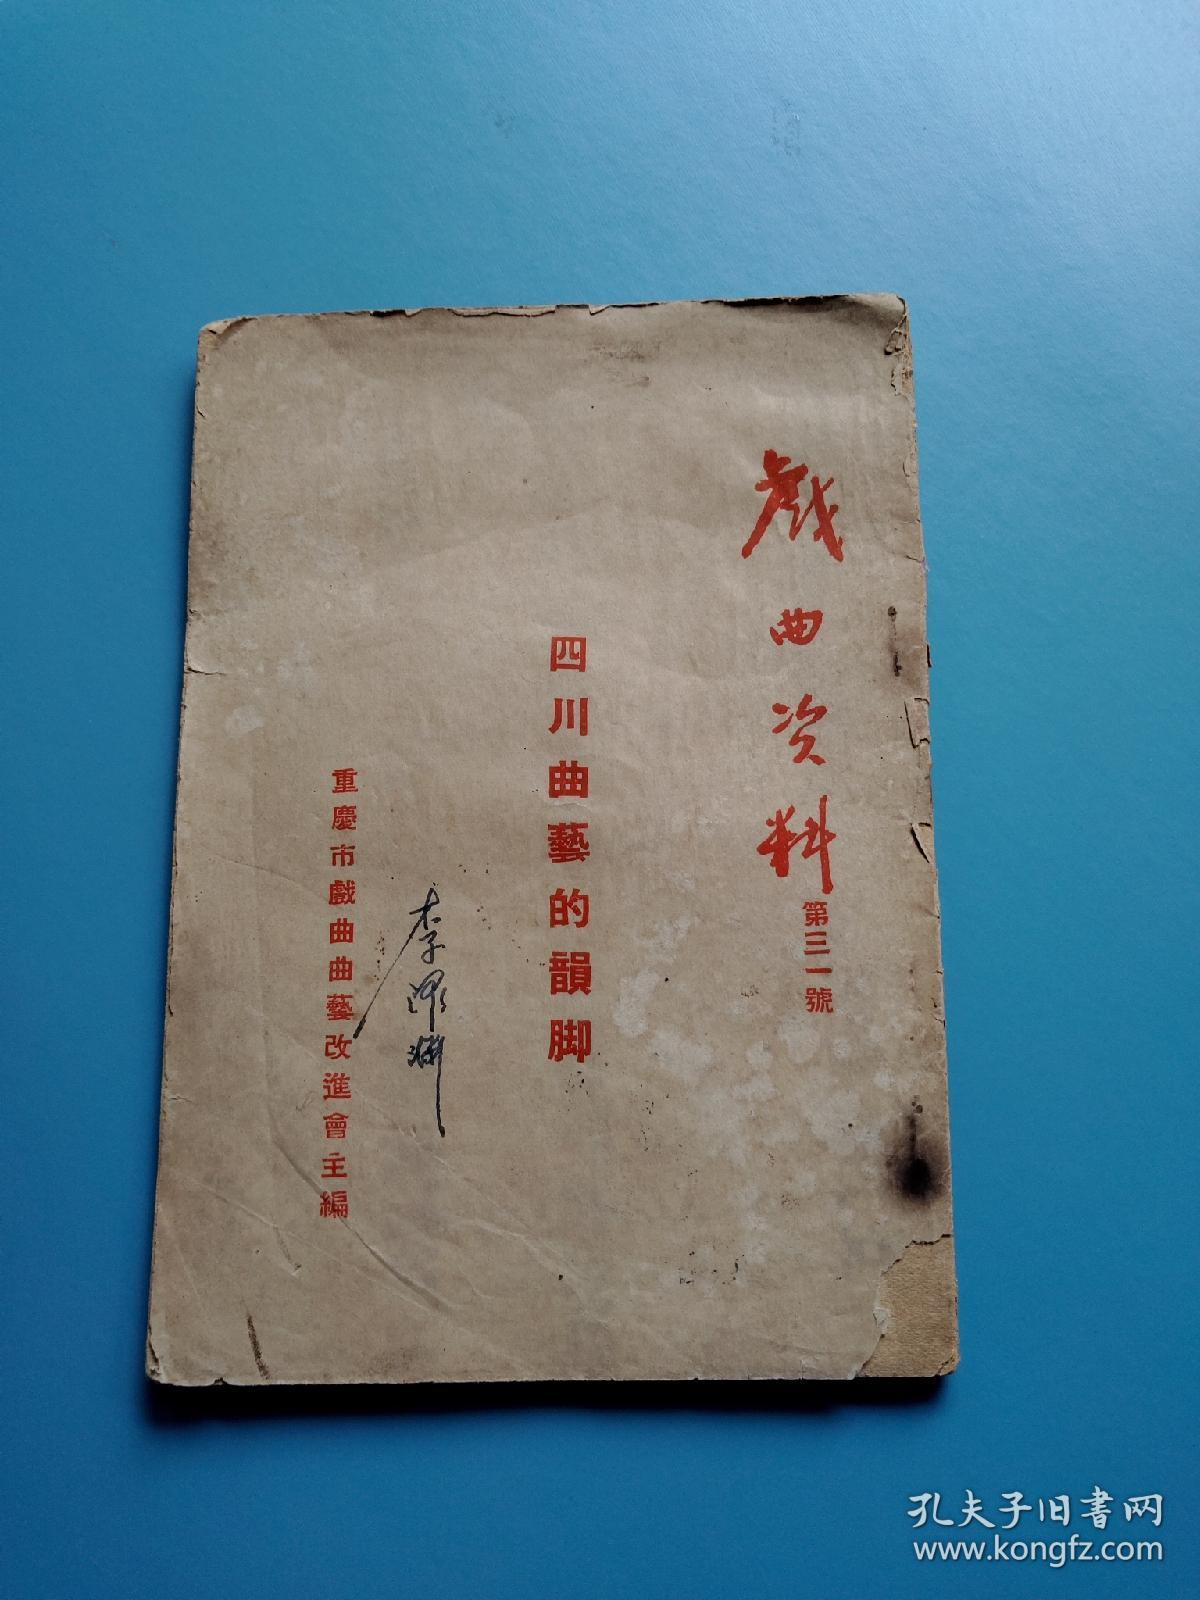 戯曲资料
第三一號
四川曲藝的韻脚
重慶市戲曲曲藝改進會主編
孔夫子旧书网
www.kongfz.com